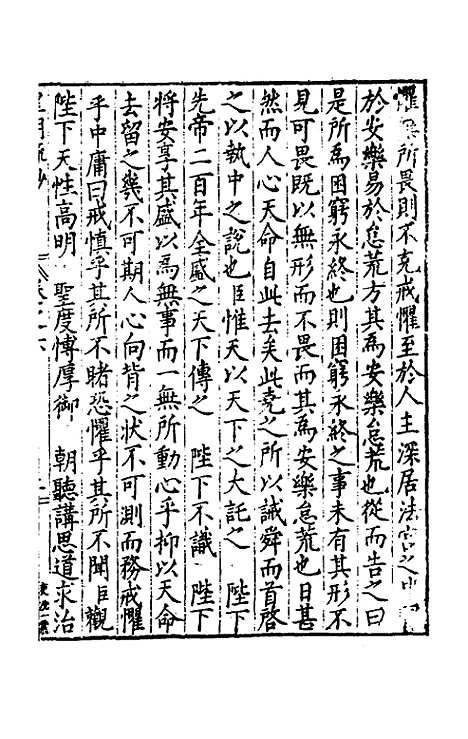 懼無所畏則不克戒懼至於人主深居法宮之中
於安樂易於怠荒方其為安樂怠荒也從而告之曰
是所為困窮永終也則困窮永終之事未有其形不
見可畏既以無形而不畏而其為安樂怠荒也日甚
然而人心天命自此去矣此堯之所以誡舜而首啓
之以執中之說也臣惟天以天下之大託之　陛下
先帝二百年全盛之天下傳之　陛下不識　陛下
將安享其盛以為無事而一無所動心乎抑以天命
去留之幾不可期人心向背之狀不可測而務戒懼
乎中庸曰戒慎乎其所不睹恐懼乎其所不聞臣觀
陛下天性高明　聖度慱厚御　朝聽講思道求治
卷之六